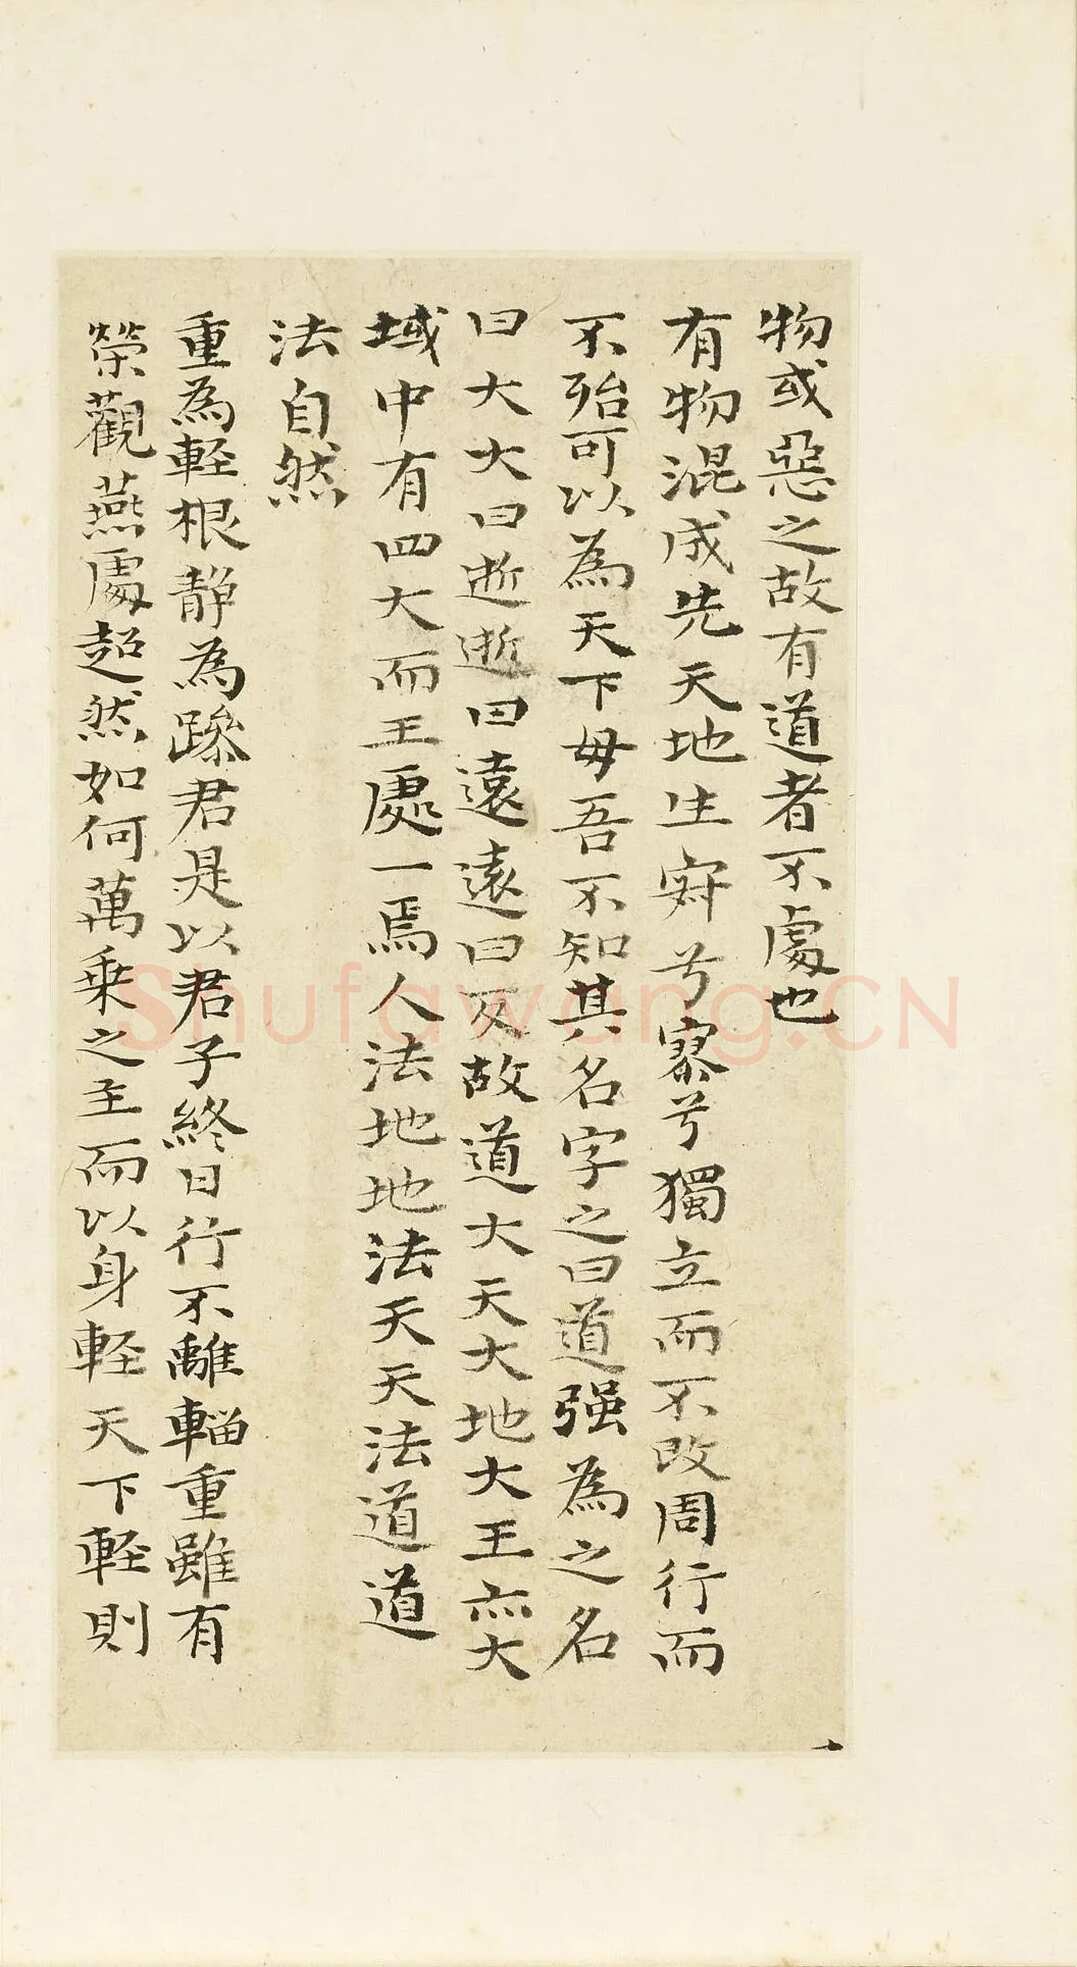 物或惡之故有道者不處也
有物混成先天地生寂兮寥兮獨立而不改周行而
不殆可以為天下母吾不知其名字之曰道强為之名
曰大大曰逝逝曰遠遠曰反故道大天大地大王亦大
域中有四大而王處一焉人法地地法天天法道道
法自然
重為輕根静為躁君是以君子終日行不離輜重雖有
榮觀燕處超然如何萬乗之主而以身軽天下軽則
Shufawang.CN